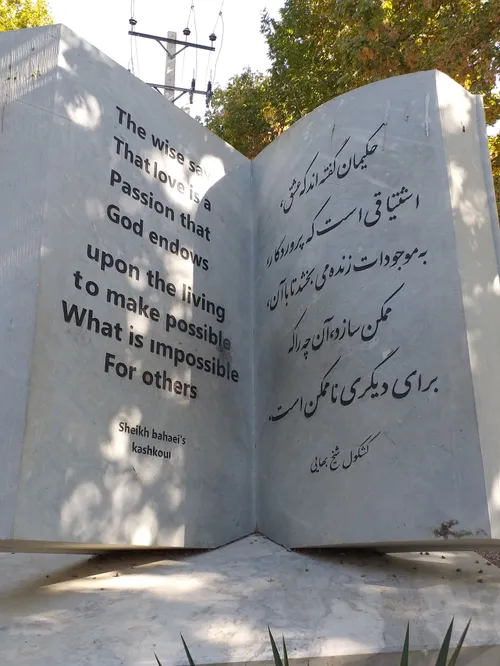 The wise say
That love is a
Passion that
God endows
upon the living
to make possible
What is impossible
For others
Sheikh bahaei's
kashkoul
حکیمان گفته اند که عشق،
اشتیاقی است که پروردگار،
به موجودات زنده می بخشد تا با آن،
ممکن سازد، آن چه را که
برای دیگری ناممکن است.
کشکول شیخ بهایی